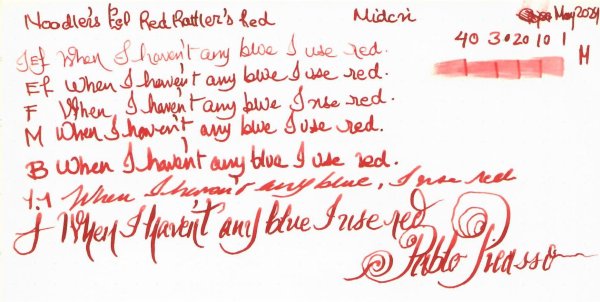 Noodler's Eel Red Rattler's Red Midori May 2024
40 30 20 10 1
M
Ef When I haven't any blue I use red.
Ef When I haven't any blue I use red.
F When I haven't any blue I use red.
M When I haven't any blue I use red.
B When I haven't any blue I use red.
1.1 When I haven't any blue, I use red
J When I haven't any blue I use red
Pablo Picasso